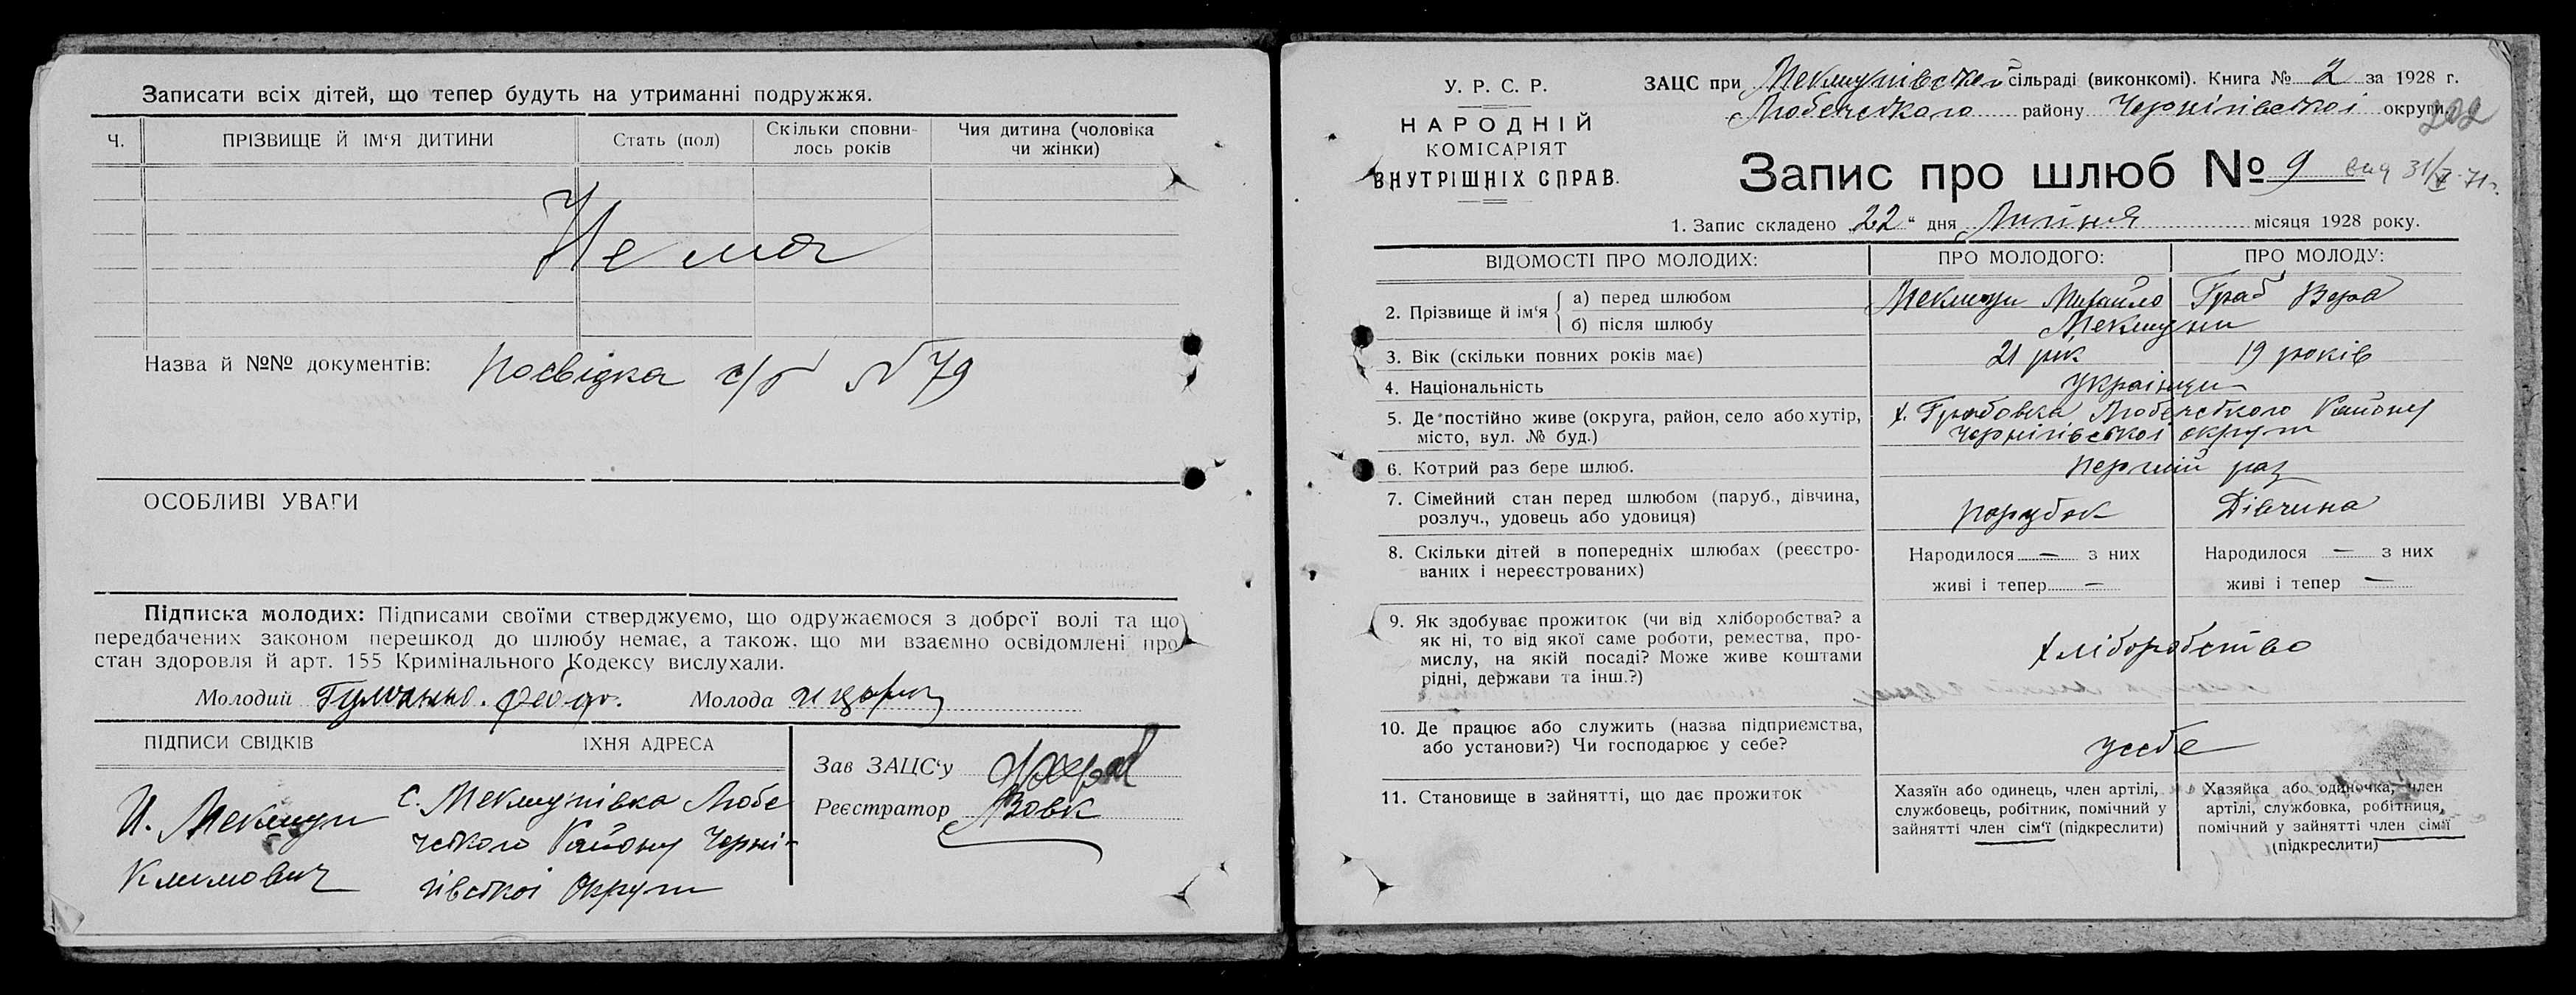 Записати всіх дітей, що тепер будуть на утриманні подружжя.
Ч. ПРІЗВИЩЕ Й ІМ'Я ДИТИНИ Стать (пол) Скільки сповни- Чия дитина (чоловіка
лось років чи жінки)
Нема
Назва й №№ документів: Посвідка с/р N 79
ОСОБЛИВІ УВАГИ
Підписка молодих: Підписами своїми стверджуємо, що одружаємося з доброї волі та що
передбачених законом перешкод до шлюбу немає, а також, що ми взаємно освідомлені про
стан здоровля й арт. 155 Кримінального Кодексу вислухали.
Молодий Молода
ПІДПИСИ СВІДКІВ ЇХНЯ АДРЕСА
И. Мекшун
Климович
с. Мекшунівка Любе
чського Району Черні-
гівської Округи
Зав ЗАЦС'у
Реєстратор Вовк
У. Р. С. Р.
НАРОДНІЙ
КОМІСАРІЯТ
ВНУТРІШНІХ СПРАВ.
ЗАЦС при Мекшунівській сільраді (виконкомі). Книга № 2 за 1928 г.
Любечського району Чернігівської округи.
202
Запис про шлюб № 9 31/V-71г.
1. Запис складено 22 " дня Липня місяця 1928 року.
ВІДОМОСТІ ПРО МОЛОДИХ: ПРО МОЛОДОГО: ПРО МОЛОДУ:
2. Прізвище й ім'я а) перед шлюбом Мекшун Михайло Граб Вера
б) після шлюбу Мекшуни
3. Вік (скільки повних років має) 21 рік 19 років
4. Національність Українци
5. Де постійно живе (округа, район, село або хутір, х. Грабовка Любечського Району
місто, вул. № буд.) Чернігівської округи
6. Котрий раз бере шлюб. перший раз
7. Сімейний стан перед шлюбом (паруб., дівчина, парубок Дівчина
розлуч., удовець або удовиця)
8. Скільки дітей в попередніх шлюбах (реєстро- Народилося — з них Народилося — з них
ваних і нереєстрованих) живі і тепер — живі і тепер —
9. Як здобуває прожиток (чи від хліборобства? а
як ні, то від якої саме роботи, ремества, про-
мислу, на якій посаді? Може живе коштами
рідні, держави та інш.?)
хліборобство
10. Де працює або служить (назва підприємства,
або установи?) Чи господарює у себе?
усебе
11. Становище в зайнятті, що дає прожиток
Хазяїн або одинець, член артілі,
службовець, робітник, помічний у
зайнятті член сім'ї (підкреслити)
Хазяйка або одиночка, член
артілі, службовка, робітниця,
помічний у зайнятті член сім'ї
(підкреслити)